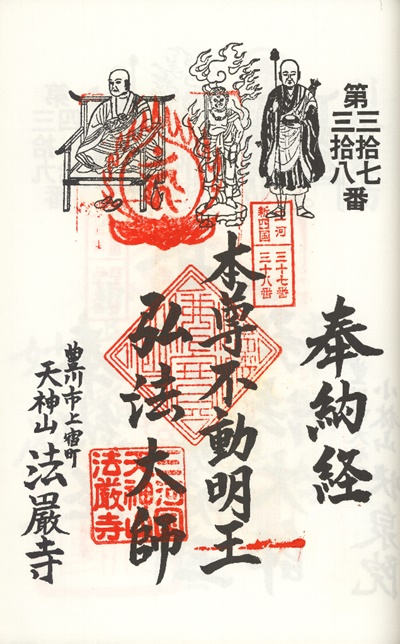 第三拾七
三拾八番
三河
新四国
三十七番
三十八番
奉納経
本尊不動明王
弘法大師
三河国
天神山
法厳寺
豊川市上宿町
天神山
法嚴寺